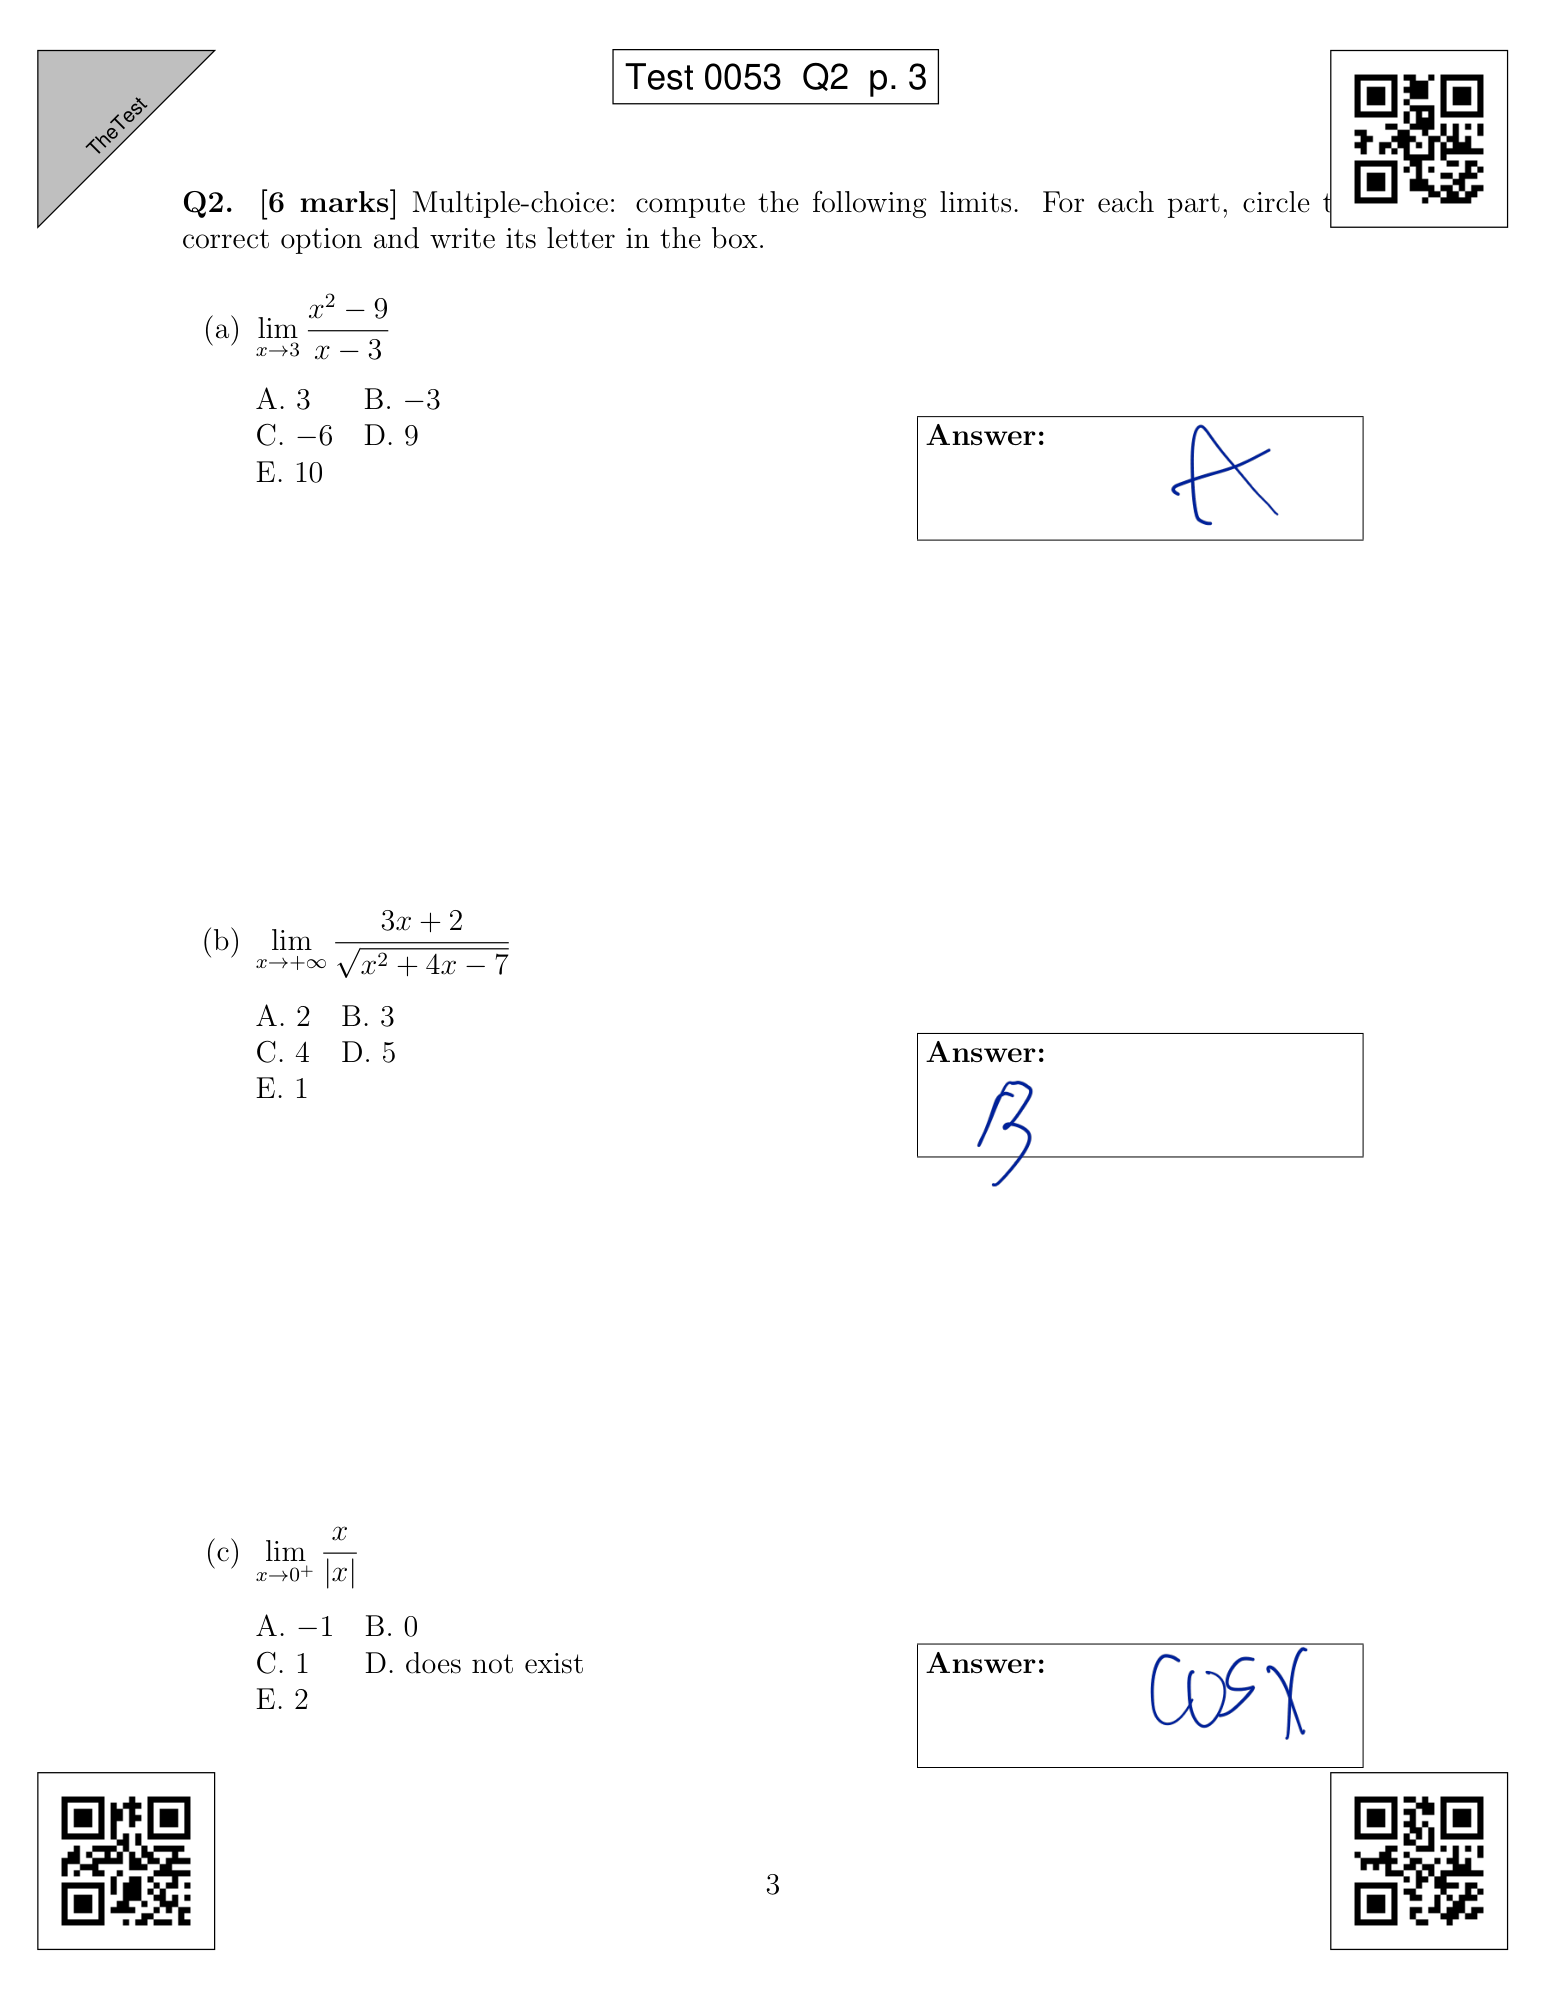 TheTest
Test 0053 Q2 p. 3
Q2. [6 marks] Multiple-choice: compute the following limits. For each part, circle t
correct option and write its letter in the box.
(a) lim x→3 (x² − 9)/(x − 3)
A. 3 B. −3
C. −6 D. 9
E. 10
Answer: A
(b) lim x→+∞ (3x + 2)/√(x² + 4x − 7)
A. 2 B. 3
C. 4 D. 5
E. 1
Answer:
B
(c) lim x→0⁺ x/|x|
A. −1 B. 0
C. 1 D. does not exist
E. 2
Answer: cosx
3